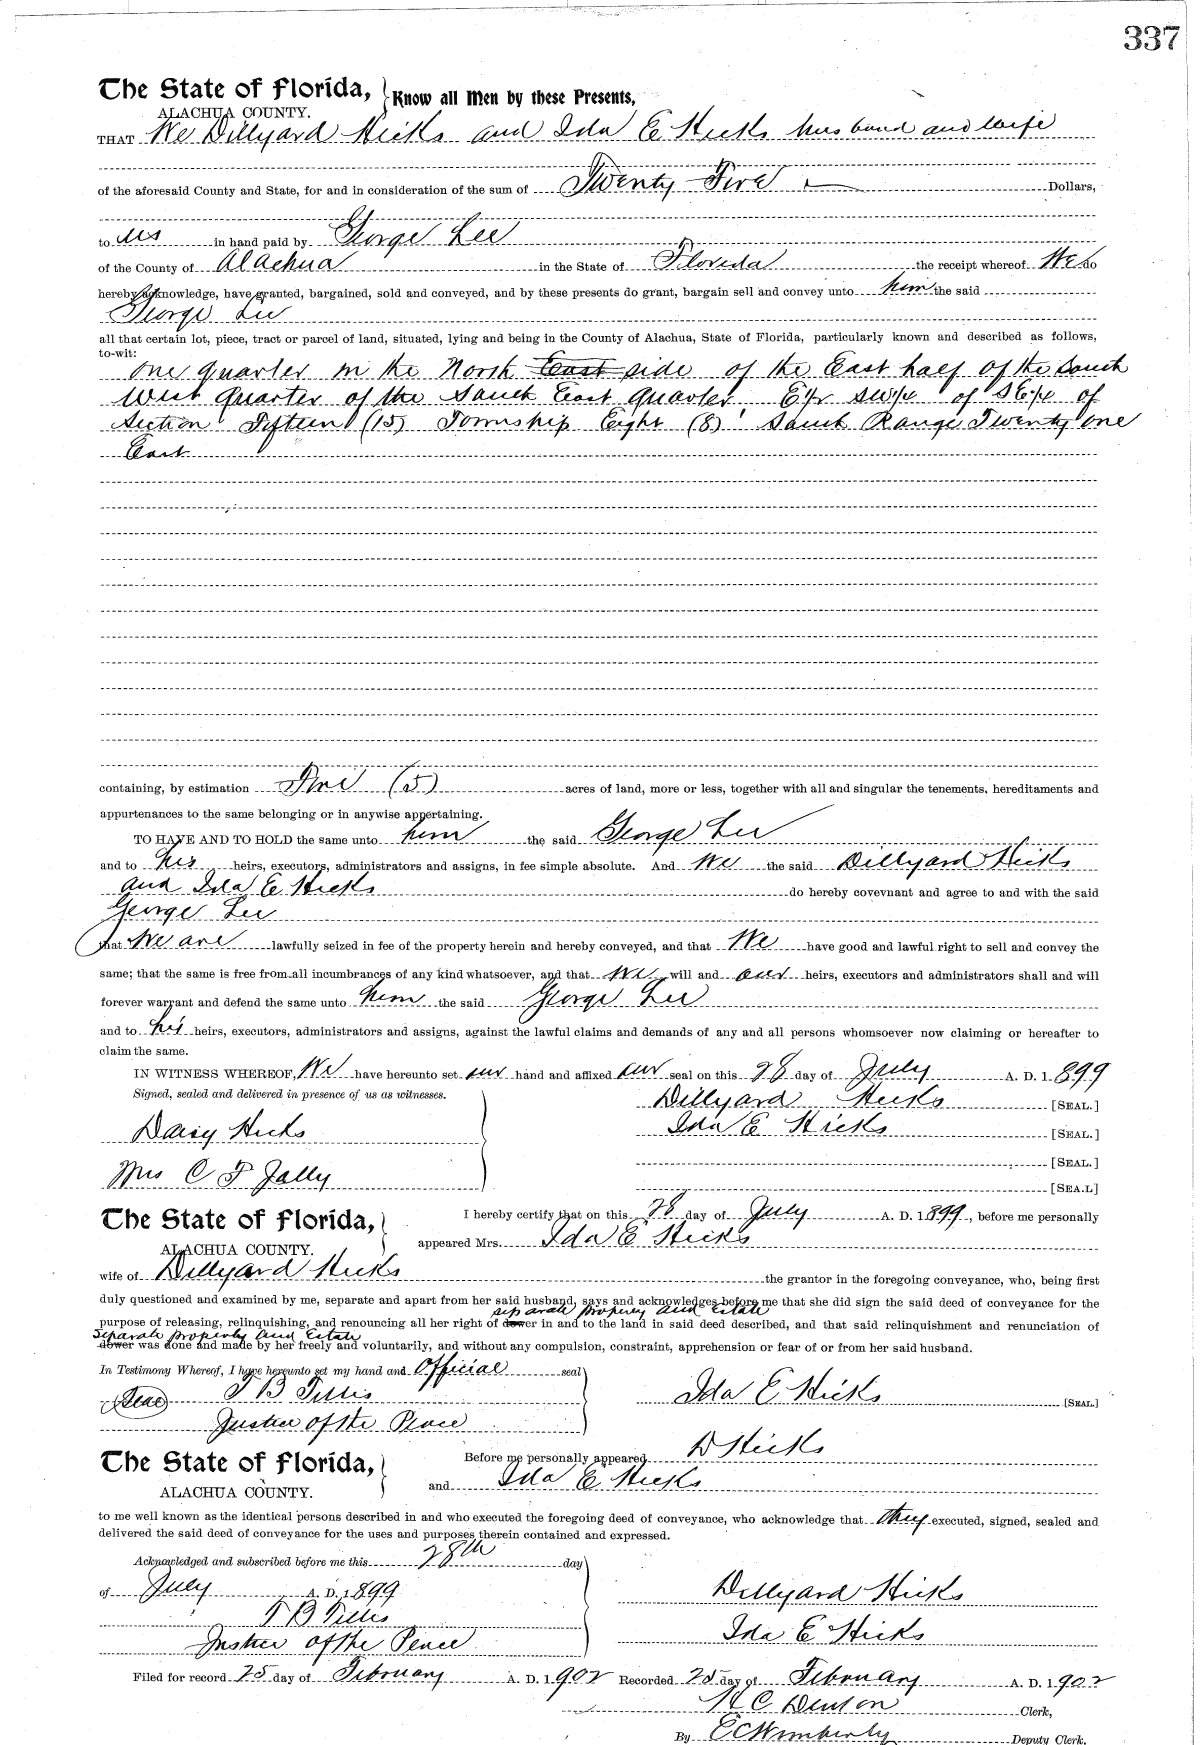 337
The State of Florida, } Know all Men by these Presents,
ALACHUA COUNTY.
THAT We Dillyard Hicks and Ida E Hicks husband and wife
of the aforesaid County and State, for and in consideration of the sum of Twenty Five Dollars,
to us in hand paid by George Lee
of the County of Alachua in the State of Florida the receipt whereof We do
hereby acknowledge, have granted, bargained, sold and conveyed, and by these presents do grant, bargain sell and convey unto him the said
George Lee
all that certain lot, piece, tract or parcel of land, situated, lying and being in the County of Alachua, State of Florida, particularly known and described as follows,
to-wit:
One quarter in the North East side of the East half of the South
West quarter of the South East quarter E½ SW¼ of SE¼ of
Section Fifteen (15) Township Eight (8) South Range Twenty one
East
containing, by estimation Five (5) acres of land, more or less, together with all and singular the tenements, hereditaments and
appurtenances to the same belonging or in anywise appertaining.
TO HAVE AND TO HOLD the same unto him the said George Lee
and to his heirs, executors, administrators and assigns, in fee simple absolute. And We the said Dillyard Hicks
and Ida E Hicks do hereby covevnant and agree to and with the said
George Lee
that We are lawfully seized in fee of the property herein and hereby conveyed, and that We have good and lawful right to sell and convey the
same; that the same is free from all incumbrances of any kind whatsoever, and that We will and our heirs, executors and administrators shall and will
forever warrant and defend the same unto him the said George Lee
and to his heirs, executors, administrators and assigns, against the lawful claims and demands of any and all persons whomsoever now claiming or hereafter to
claim the same.
IN WITNESS WHEREOF, We have hereunto set our hand and affixed our seal on this 28 day of July A. D. 1899
Signed, sealed and delivered in presence of us as witnesses.
Dillyard Hicks [SEAL.]
Daisy Hicks Ida E Hicks [SEAL.]
[SEAL.]
Mrs C F Jally [SEA.L]
The State of Florida, } I hereby certify that on this 28 day of July A. D. 1899, before me personally
ALACHUA COUNTY. appeared Mrs. Ida E Hicks
wife of Dillyard Hicks the grantor in the foregoing conveyance, who, being first
duly questioned and examined by me, separate and apart from her said husband, says and acknowledges before me that she did sign the said deed of conveyance for the
separate property and Estate
purpose of releasing, relinquishing, and renouncing all her right of dower in and to the land in said deed described, and that said relinquishment and renunciation of
Separate property and Estate
dower was done and made by her freely and voluntarily, and without any compulsion, constraint, apprehension or fear of or from her said husband.
In Testimony Whereof, I have hereunto set my hand and Official seal
(Seal) T B Tillis Ida E Hicks [SEAL]
Justice of the Peace
The State of Florida, } Before me personally appeared D Hicks
ALACHUA COUNTY. and Ida E Hicks
to me well known as the identical persons described in and who executed the foregoing deed of conveyance, who acknowledge that they executed, signed, sealed and
delivered the said deed of conveyance for the uses and purposes therein contained and expressed.
Acknowledged and subscribed before me this 28th day
of July A. D. 1899 Dillyard Hicks
T B Tillis
Justice of the Peace Ida E Hicks
Filed for record 25 day of February A. D. 1902 Recorded 25 day of February A. D. 1902
H C Denton Clerk,
By E C Wimberly Deputy Clerk.